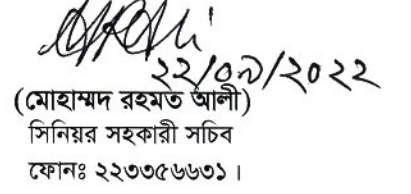 ২২/০৯/২০২২
(মোহাম্মদ রহমত আলী)
সিনিয়র সহকারী সচিব
ফোনঃ ২২৩৩৫৬৬৩১।